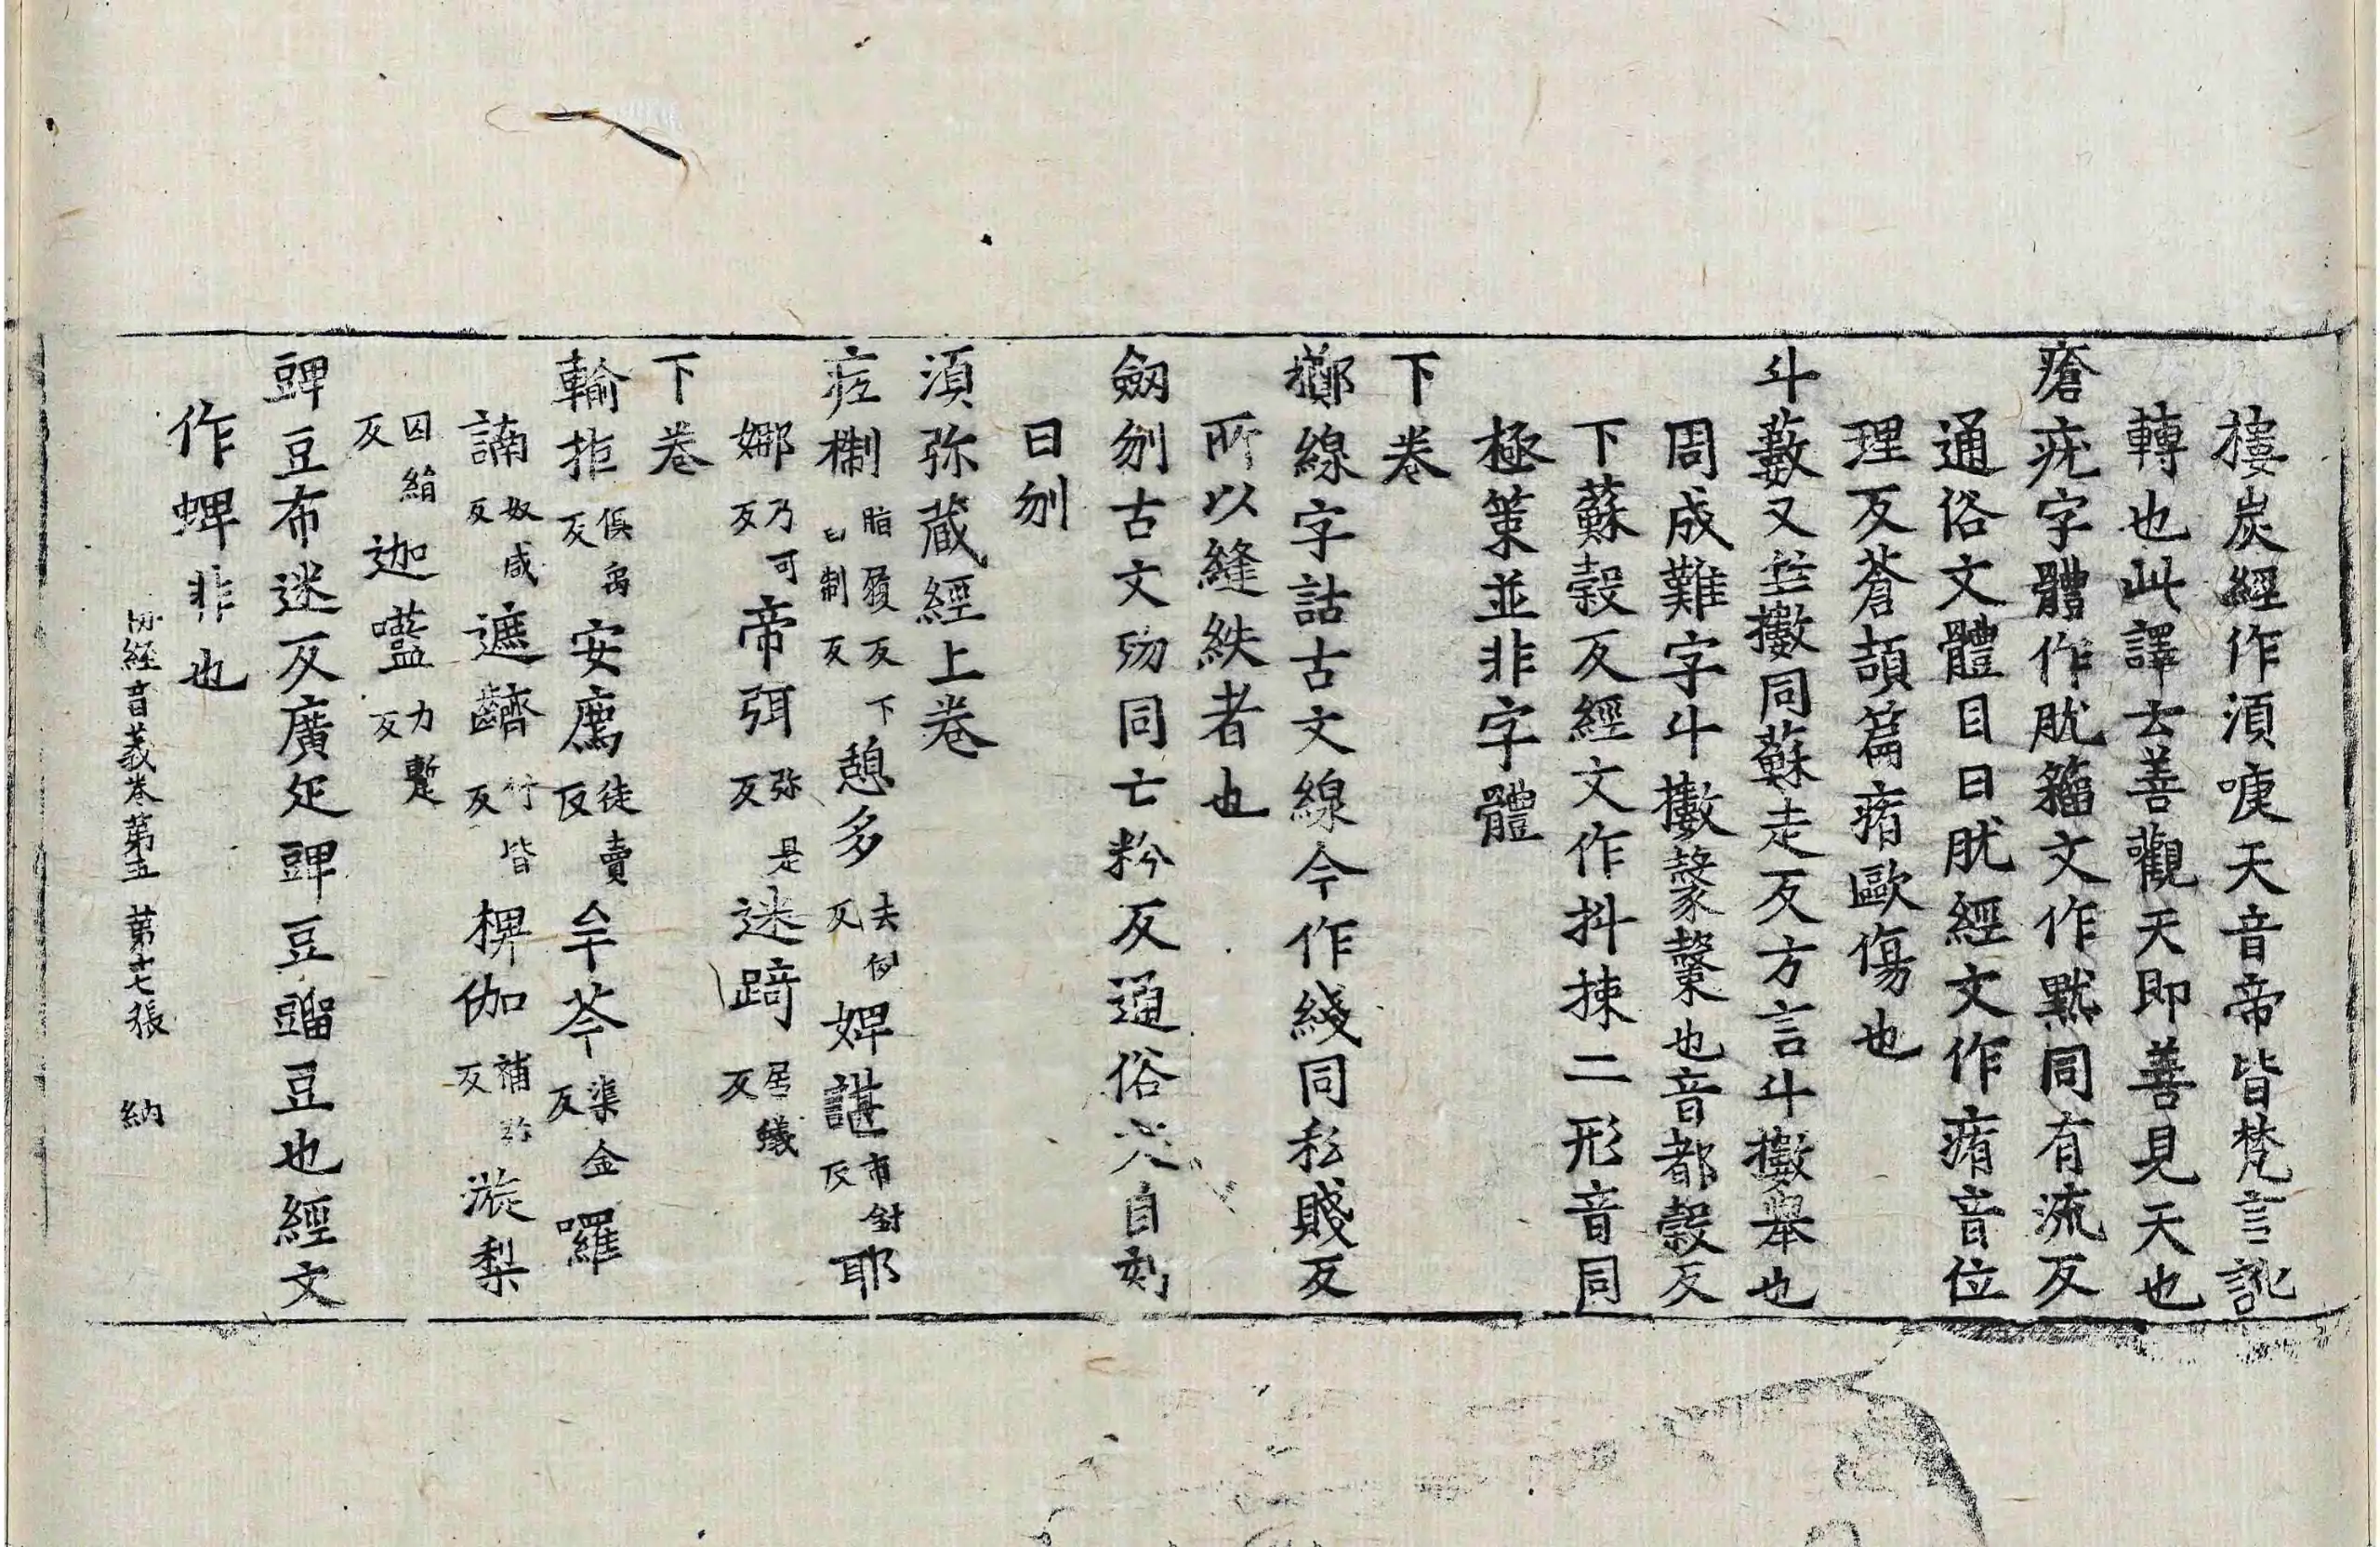 樓炭經作湏㖦天音帝皆梵言訛
轉也此譯云善觀天即善見天也
瘡疣字體作肬籀文作黖同有流反
通俗文體目曰肬經文作痏音位
理反蒼頡篇痏歐傷也
斗藪又作擻同蘇走反方言斗擻舉也
周成難字斗擻也音都穀反
下蘇穀反經文作抖捒二形音同
極策並非字體
下卷
擲線字詁古文線今作綫同私賤反
所以縫紩者也
劒刎古文歾同亡粉反通俗文自刻
曰刎
湏弥蔵經上卷
㾏㮹脂履反下乜制反憩多去例反婢諶市針反耶
娜乃可反帝弭弥是反迷踦居蟻反
下卷
輸拒俱禹反安廌徒賣反牟芩渠金反囉
諵奴咸反遮齼竹皆反椺伽補弥反漩梨
囚絹反迦㘕力蹔反
豍豆布迷反廣疋豍豆䝁豆也經文
作蜱非也
一切經音義卷第五 第十七張 納